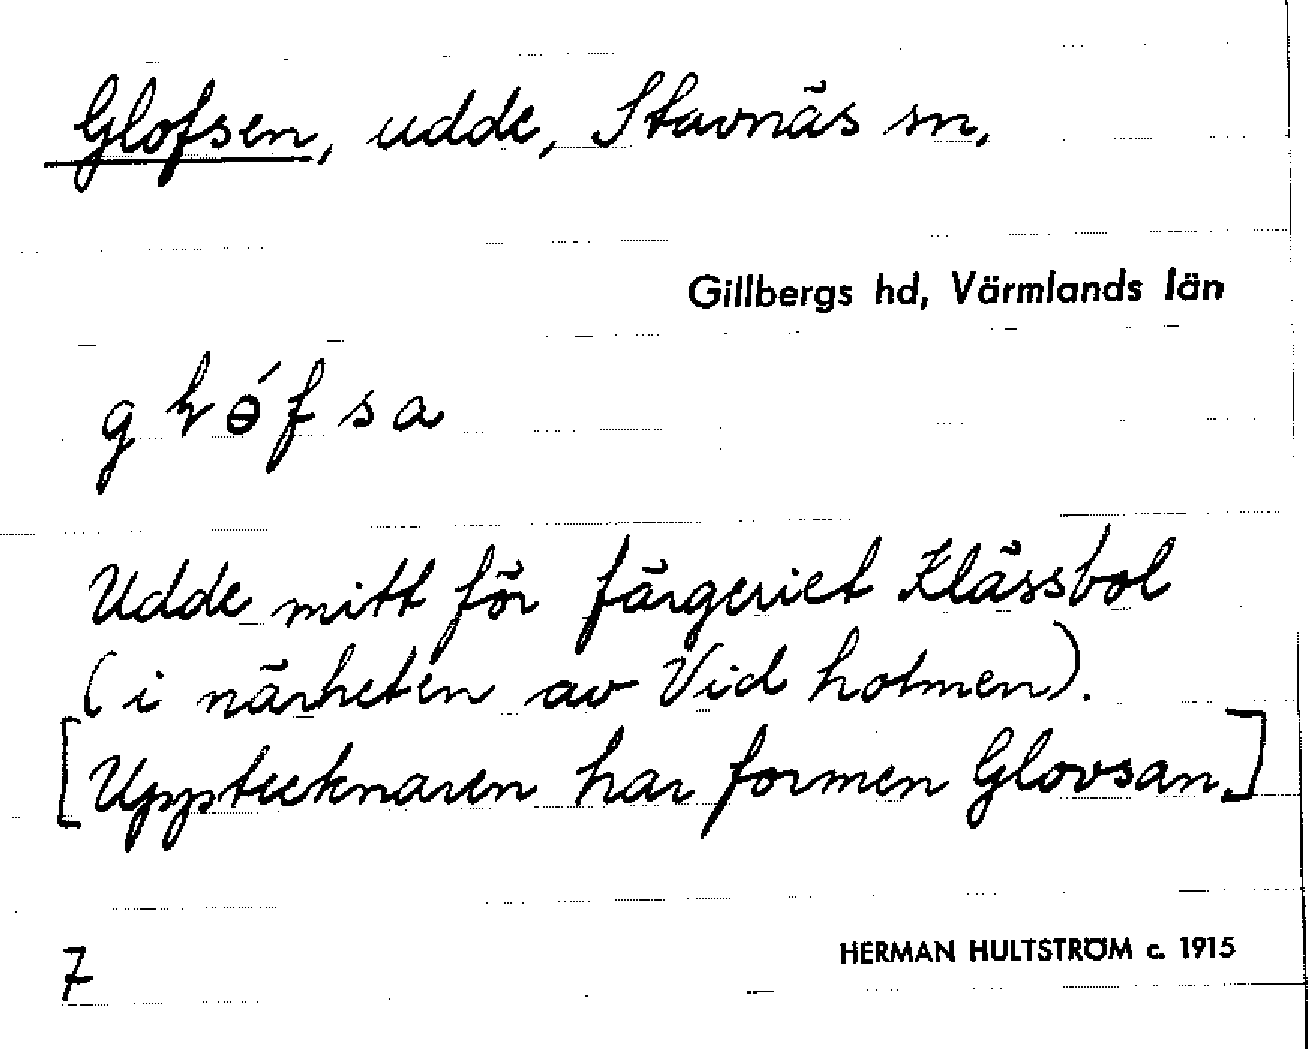 Glofsen, udde, Stavnäs sn.
Gillbergs hd, Värmlands län
Udde mitt för färgeriet Klässbol
(i närheten av Vid holmen).
[Upptecknaren har formen Glovsan.]
7
HERMAN HULTSTRÖM c. 1915